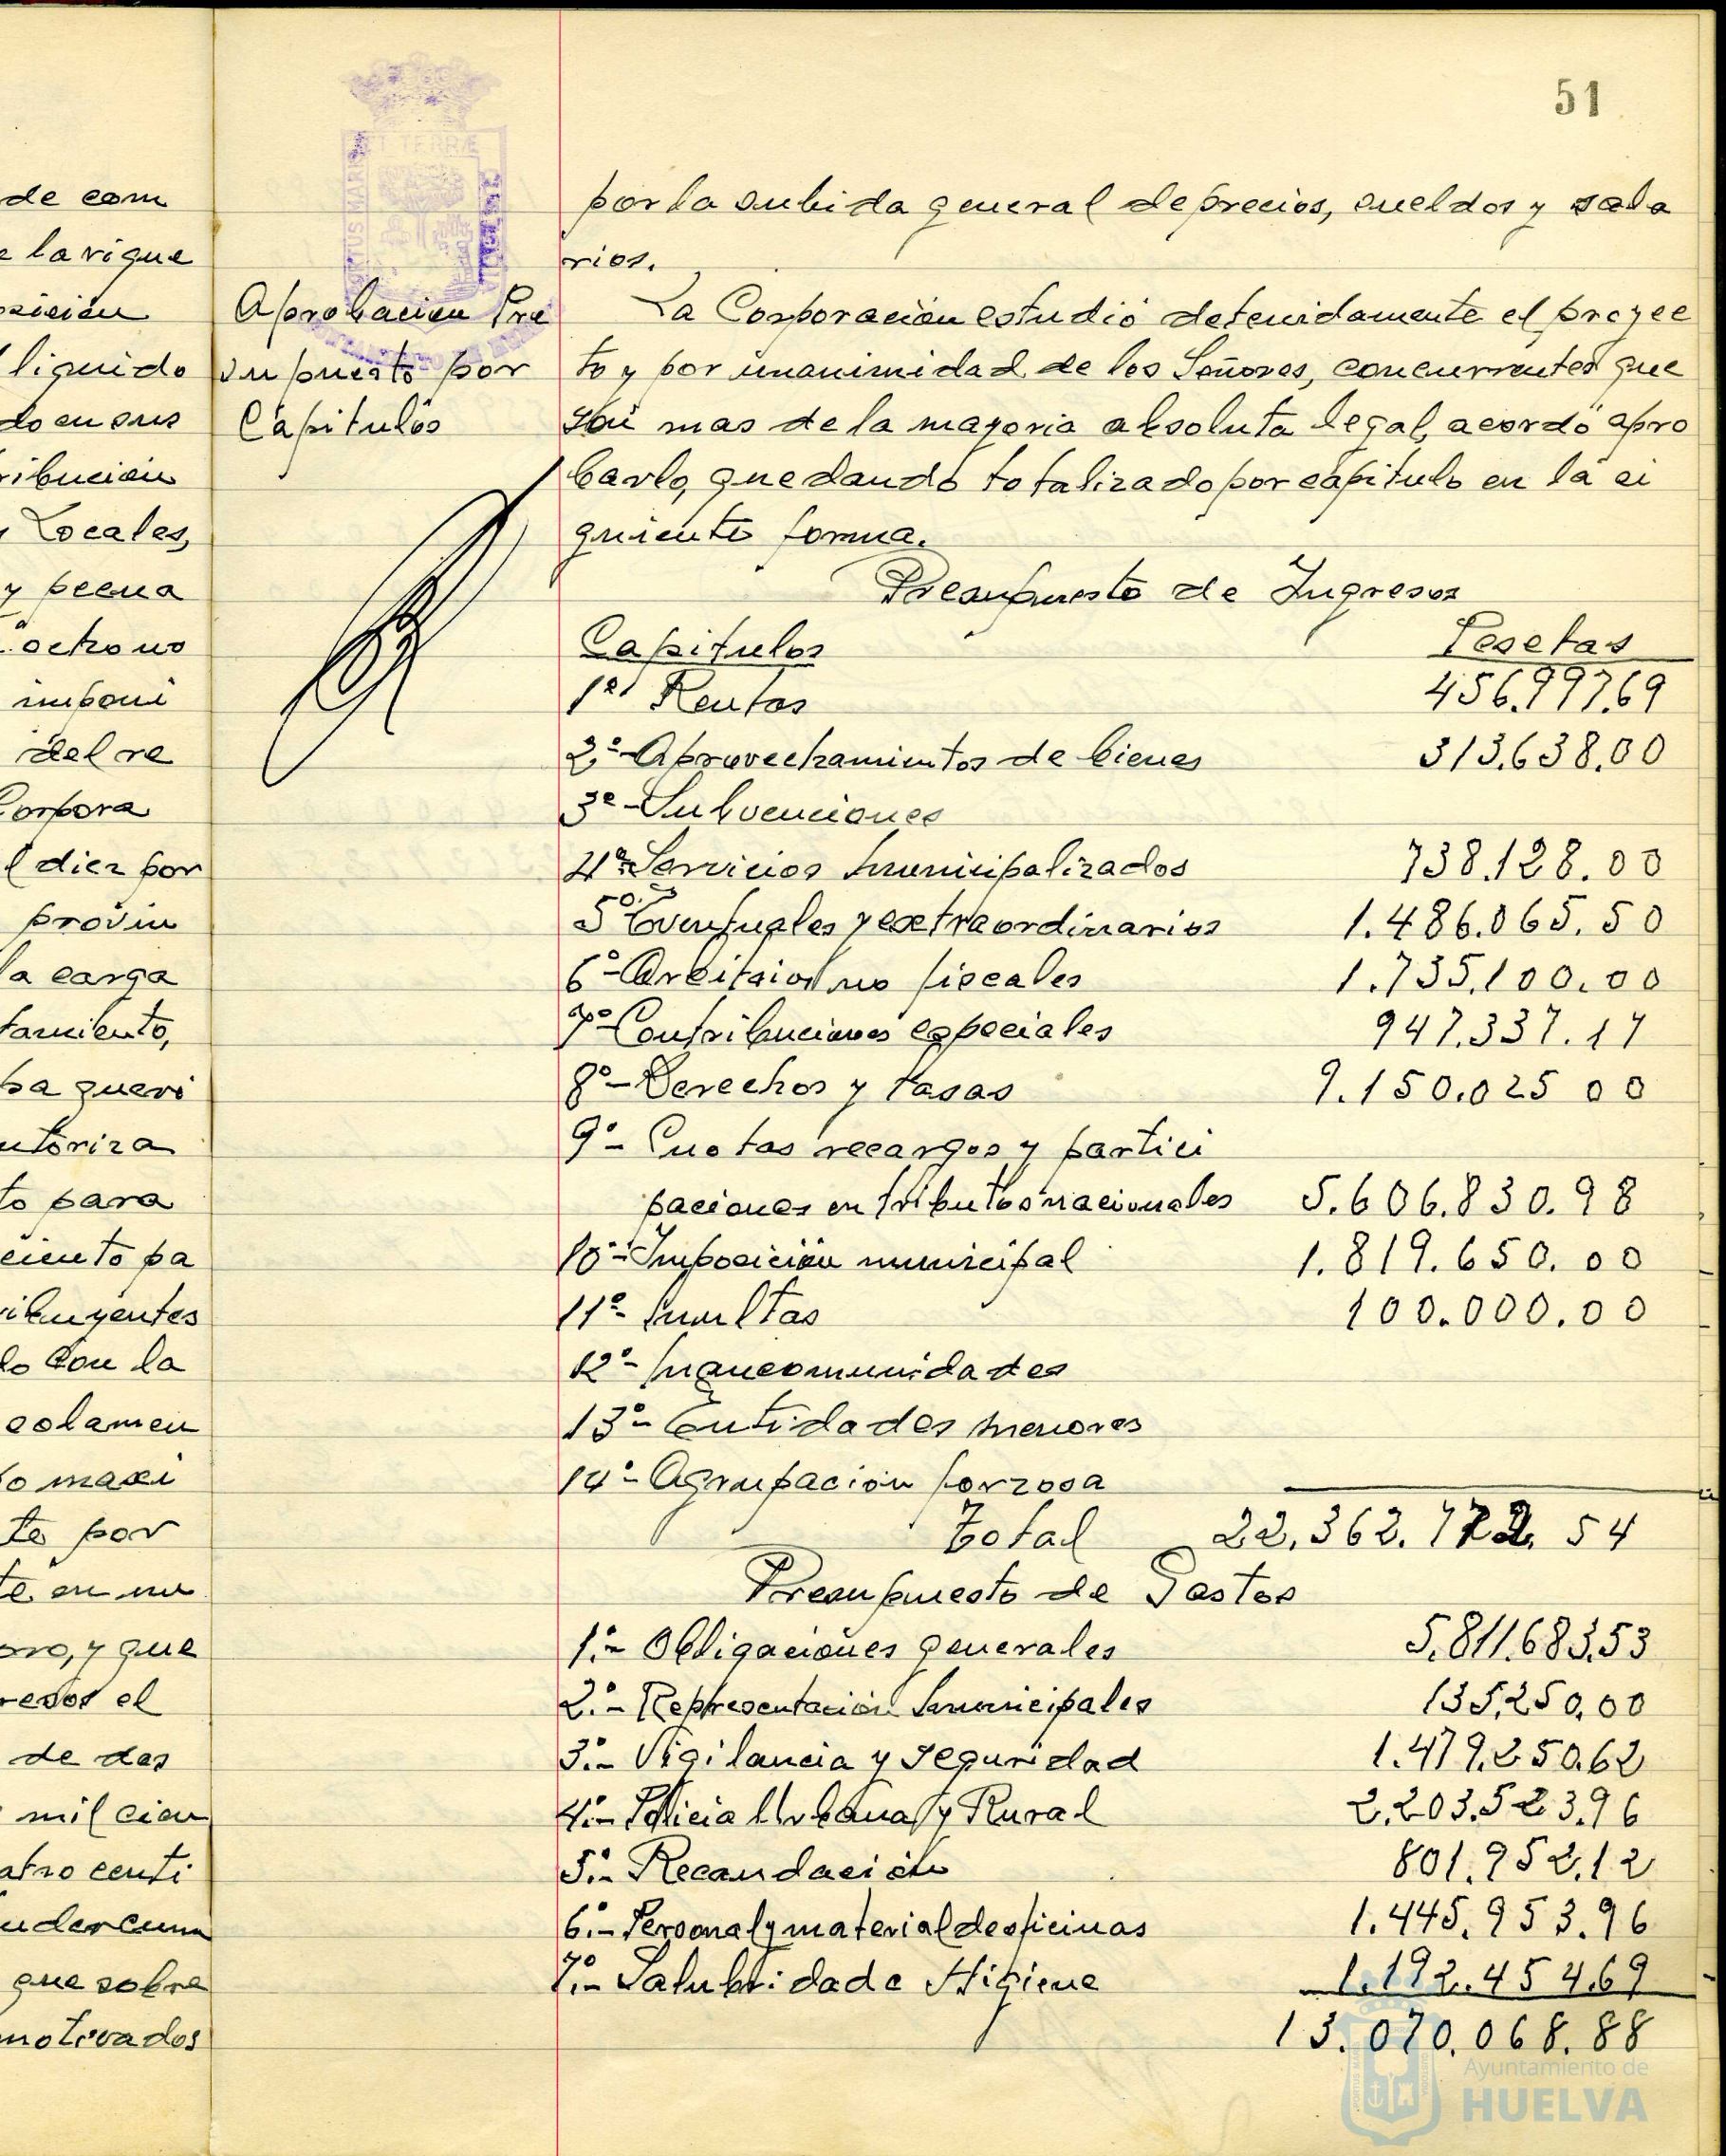 51
de com
e la vigue
osición
l liquido
do en sus
ribución
y Locales,
y pecua
octavo
imponi
del re
Corpora
l diez por
provin
la carga
tamiento,
ba queri
utoriza
to para
ciento pa
ribuyentes
do con la
solamen
o maxi
te por
te en un
oro, y que
resos el
de das
mil cien
atro centi
que sobre
motivados
ET TERRÆ
Aprobación Pre
supuesto por
Capitulos
por la subida general de precios, sueldos y sala
rios.
La Corporación estudió detenidamente el proyec
to y por unanimidad de los Señores, concurrentes que
son mas de la mayoria absoluta legal, acordó apro
barlo, quedando totalizado por capitulo en la si
guiente forma.
Presupuesto de Ingresos
Capitulos Pesetas
1º Rentas 456.997.69
2º- Aprovechamientos de bienes 313.638.00
3º- Subvenciones
4º- Servicios municipalizados 738.128.00
5º Eventuales y extraordinarios 1.486.065.50
6º- Arbitrios no fiscales 1.735.100.00
7º- Contribuciones especiales 947.337.17
8º- Derechos y tasas 9.150.025 00
9º- Cuotas recargos y partici
paciones en tributos nacionales 5.606.830.98
10º- Imposición municipal 1.819.650.00
11º- Multas 100.000.00
12º- Mancomunidades
13º- Entidades menores
14º- Agrupación forzosa
Total 22.362.772.54
Presupuesto de Gastos
1º.- Obligaciones generales 5.811.683.53
2º.- Representación Municipales 135.250.00
3º.- Vigilancia y seguridad 1.479.250.62
4º.- Policia Urbana y Rural 2.203.523.96
5º.- Recaudación 801.952.12
6º.- Personal y material de oficinas 1.445.953.96
7º.- Salubridad e Higiene 1.192.454.69
13.070.068.88
Ayuntamiento de
HUELVA